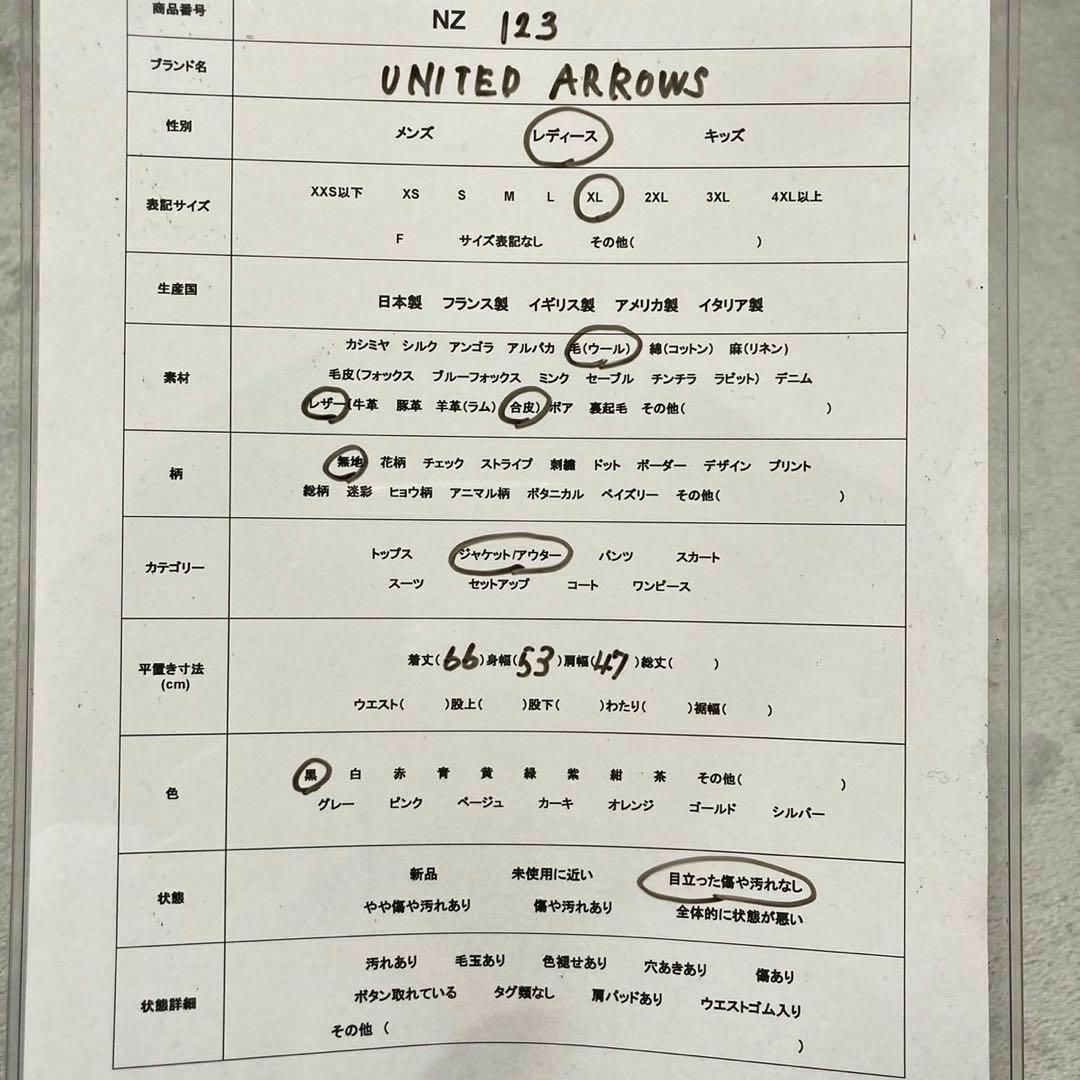 商品番号 NZ 123
ブランド名 UNITED ARROWS
性別 メンズ レディース キッズ
表記サイズ XXS以下 XS S M L XL 2XL 3XL 4XL以上
F サイズ表記なし その他( )
生産国 日本製 フランス製 イギリス製 アメリカ製 イタリア製
素材 カシミヤ シルク アンゴラ アルパカ 毛(ウール) 綿(コットン) 麻(リネン)
毛皮(フォックス ブルーフォックス ミンク セーブル チンチラ ラビット) デニム
レザー(牛革 豚革 羊革(ラム) 合皮) ボア 裏起毛 その他( )
柄 無地 花柄 チェック ストライプ 刺繍 ドット ボーダー デザイン プリント
総柄 迷彩 ヒョウ柄 アニマル柄 ボタニカル ペイズリー その他( )
カテゴリー トップス ジャケット/アウター パンツ スカート
スーツ セットアップ コート ワンピース
平置き寸法 (cm) 着丈(66)身幅(53)肩幅(47)総丈( )
ウエスト( )股上( )股下( )わたり( )裾幅( )
色 黒 白 赤 青 黄 緑 紫 紺 茶 その他( )
グレー ピンク ベージュ カーキ オレンジ ゴールド シルバー
状態 新品 未使用に近い 目立った傷や汚れなし
やや傷や汚れあり 傷や汚れあり 全体的に状態が悪い
状態詳細 汚れあり 毛玉あり 色褪せあり 穴あきあり 傷あり
ボタン取れている タグ類なし 肩パッドあり ウエストゴム入り
その他 ( )